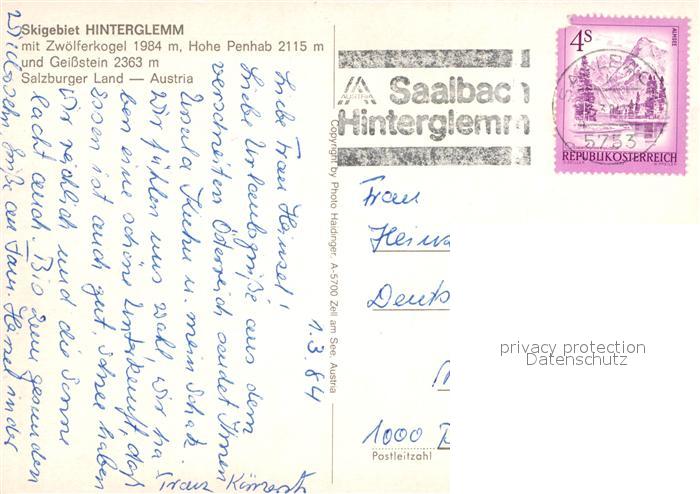 Skigebiet HINTERGLEMM
mit Zwölferkogel 1984 m, Hohe Penhab 2115 m
und Geißstein 2363 m
Salzburger Land — Austria
AUSTRIA
Saalbach
Hinterglemm
4s
ALMSEE
SAALBACH
5753
REPUBLIK ÖSTERREICH
1.3.84
Liebe Frau Hensel!
Liebe Urlaubsgrüße aus dem
verschneiten Österreich sendet Ihnen
Ursula Kuhn u. mein Schatz.
Wir fühlen uns wohl, wir ha-
ben eine schöne Unterkunft, das
Essen ist auch gut. Schnee haben
wir reichlich und die Sonne
lacht auch. Bis zum gesunden
Wiedersehn. Grüße an Fam. Hensel
Franz
Copyright by Photo Haidinger, A-5700 Zell am See, Austria
Frau
Deuts
1000
Postleitzahl
privacy protection
Datenschutz